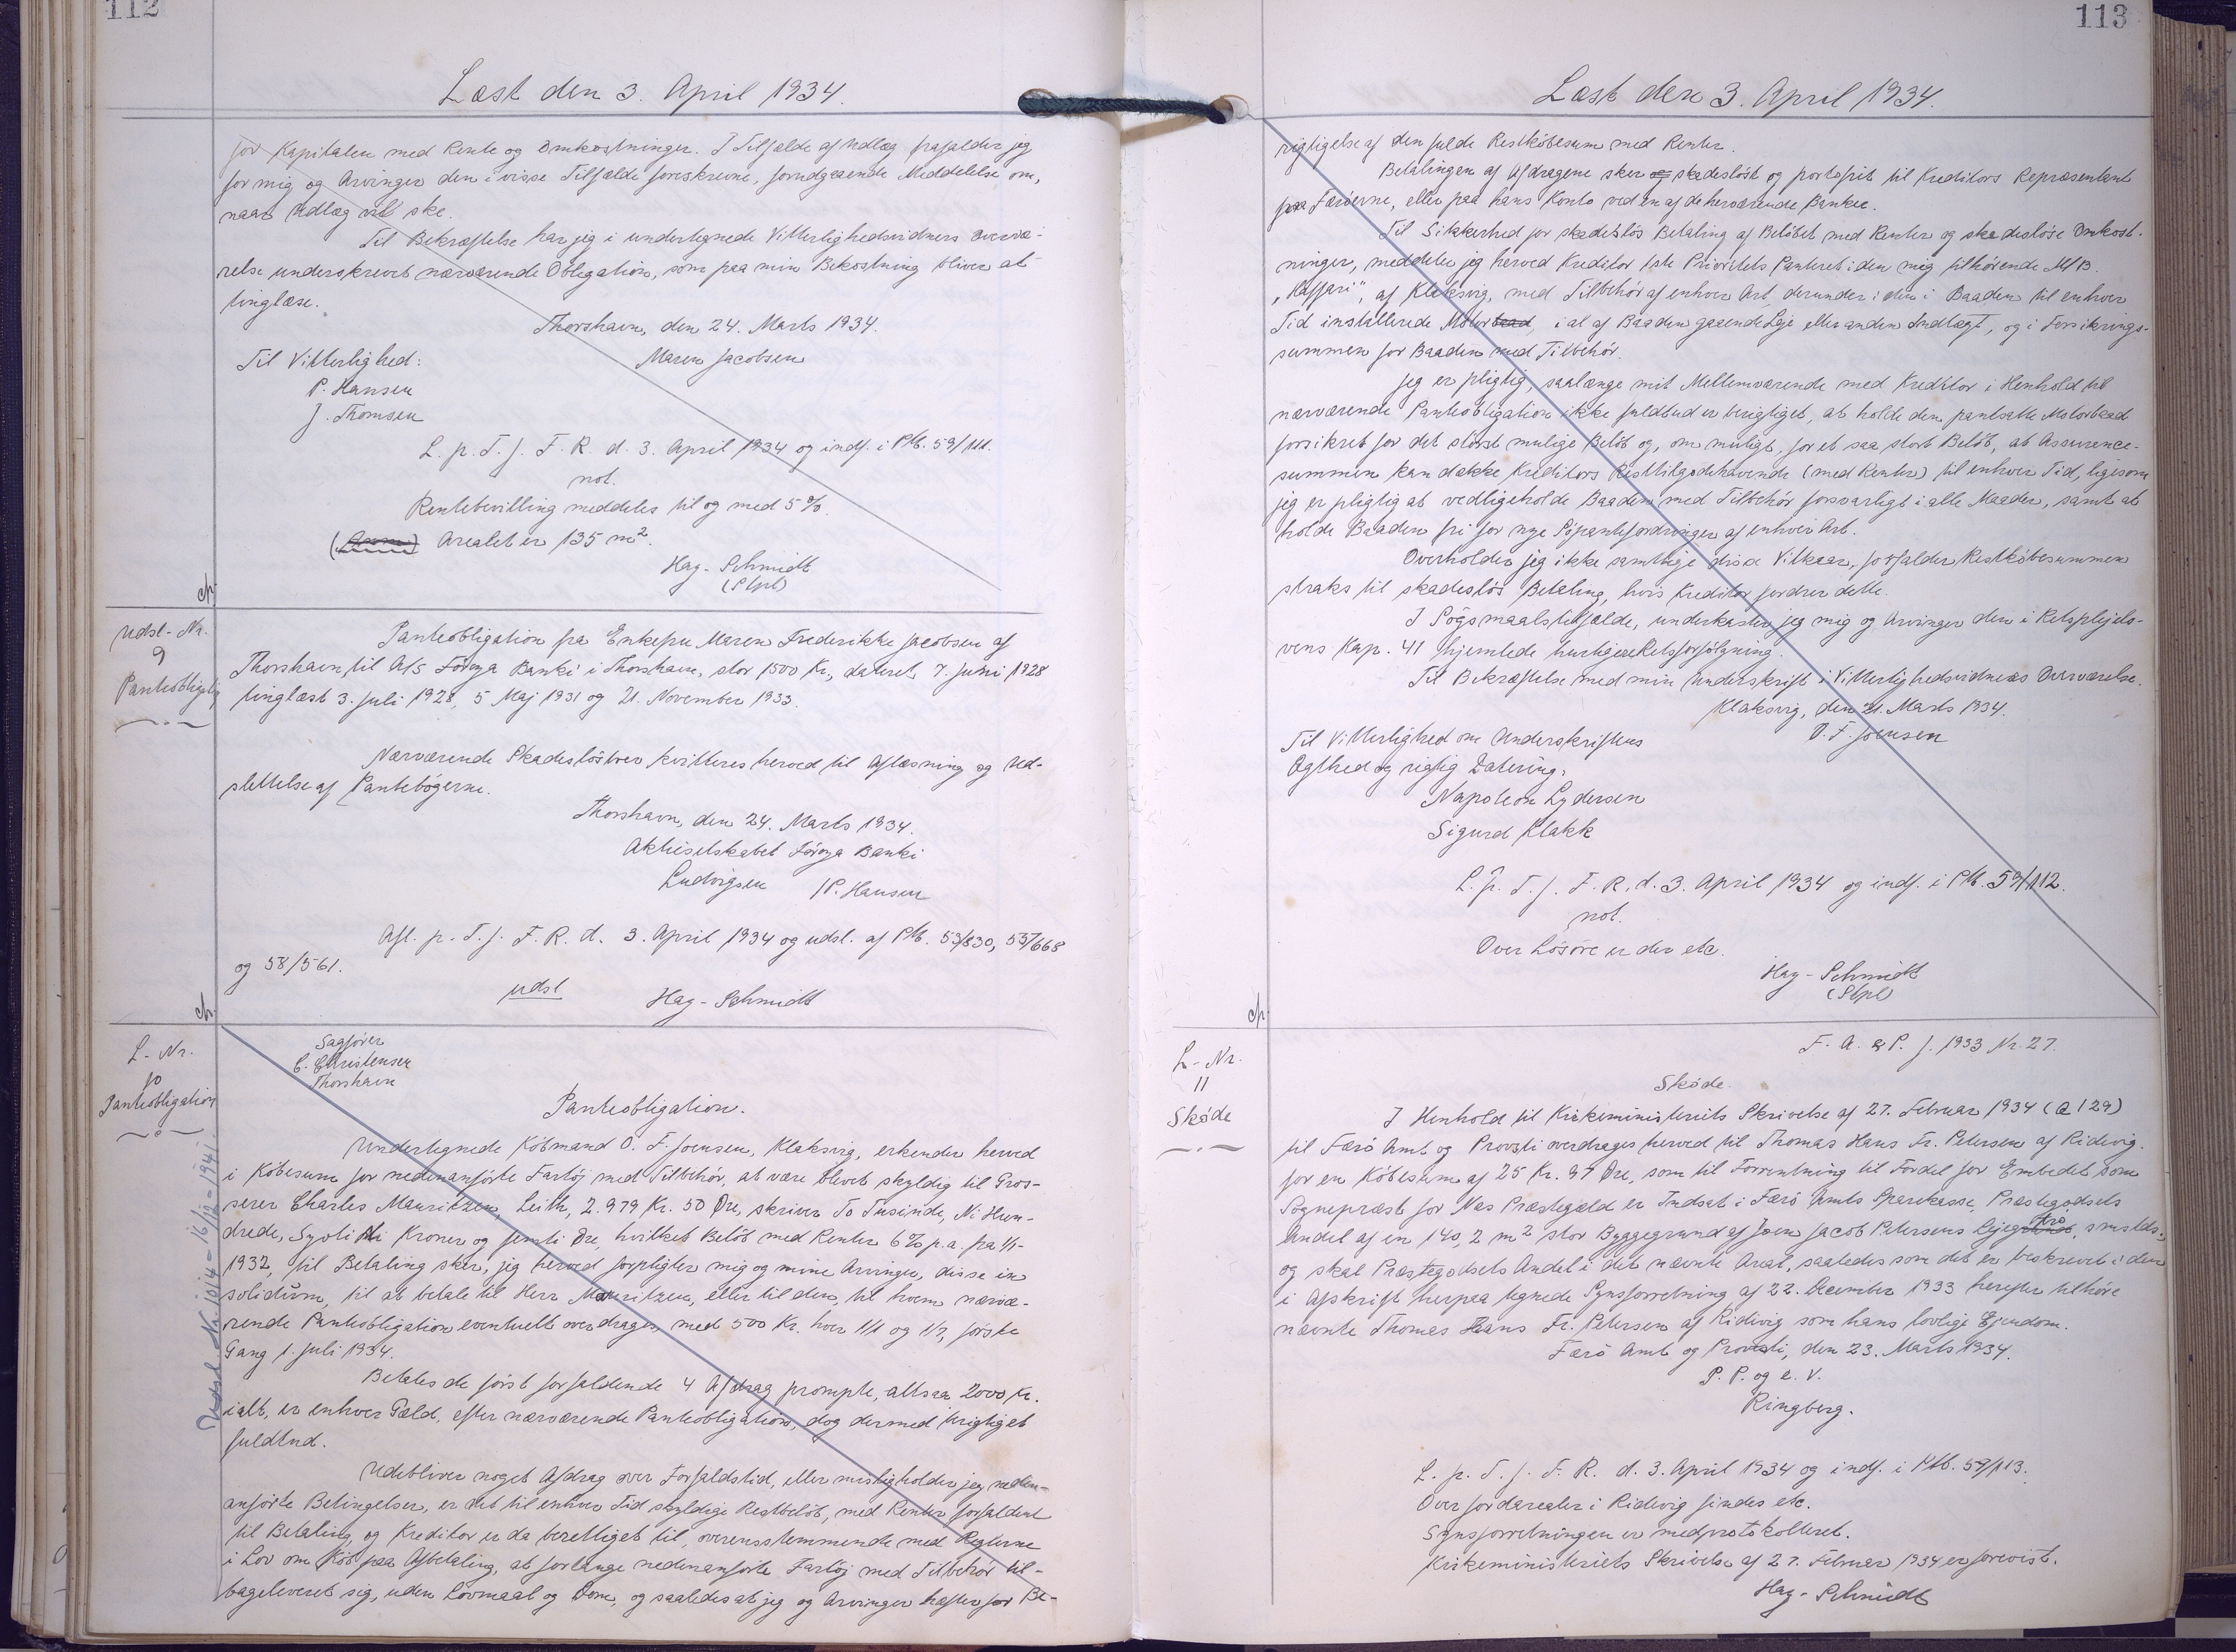 112
Læst den 3. April 1934.
for Kapitalen med Rente og Omkostninger. I Tilfælde af Udlæg frafalder jeg
for mig og Arvinger den i visse Tilfælde foreskrevne, forudgaaende Meddelelse om,
naar Udlæg vil ske.
Til Bekræftelse har jeg i undertegnede Vitterlighedsvidners Overvæ-
relse underskrevet nærværende Obligation, som paa min Bekostning bliver at
tinglæse.
Thorshavn, den 24. Marts 1934.
Til Vitterlighed: Maren Jacobsen
P. Hansen
J. Thomsen
L. p. T. f. F. R. d. 3. April 1934 og indf. i Ptb. 59/111.
not.
Rentebevilling meddeles til og med 5%.
Arealet er 135 m².
Hag-Schmidt
(Stpl)
Udsl-Nr.
9
Panteobligation
Panteobligation fra Enkefru Maren Frederikke Jacobsen af
Thorshavn, til A/S Föroya Banki i Thorshavn, stor 1500 Kr., dateret 7. Juni 1928
tinglæst 3. Juli 1928, 5 Maj 1931 og 21. November 1933.
Nærværende Skadeslösbrev kvitteres herved til Aflæsning og Ud-
slettelse af Pantebögerne.
Thorshavn, den 24. Marts 1934.
Aktieselskabet Föroya Banki
Ludvigsen /P. Hansen
Afl. p. T. f. F. R. d. 3. April 1934 og udsl. af Ptb. 53/830, 55/668
og 58/561.
udsl Hag-Schmidt
L-Nr.
10
Panteobligation
Udsl. Nr. 10/4 - 16/12-1941.
Sagförer
C. Christensen
Thorshavn
Panteobligation.
Undertegnede Köbmand O. F. Joensen, Klaksvig, erkender herved
i Köbesum for nedenanförte Fartöj med Tilbehör, at være blevet skyldig til Gros-
serer Charles Mauritzen, Leith, 2.979 Kr. 50 Øre, skriver To Tusinde, Ni Hun-
drede, Syvti Ni Kroner og femti Øre, hvilket Beløb med Renter 6% p.a. fra 1/1-
1932, til Betaling sker, jeg herved forpligter mig og mine Arvinger, disse in
solidum, til at betale til Herr Mauritzen, eller til den, til hvem nærvæ-
rende Panteobligation eventuelt overdrages, med 500 Kr. hver 1/1 og 1/7, förste
Gang 1. Juli 1934.
Betales de först forfaldende 4 Afdrag prompte, altsaa 2000 Kr.
ialt, er enhver Gæld, efter nærværende Panteobligation, dog dermed berigtiget
fuldtud.
Udebliver noget Afdrag over Forfaldstid, eller misligholder jeg neden-
anförte Betingelser, er det til enhver Tid skyldige Restbelöb, med Renter forfaldent
til Betaling, og Kreditor er da berettiget til, overensstemmende med Reglerne
i Lov om Köb paa Afbetaling, at forlange nedenanförte Fartöj med Tilbehör til-
bageleveret sig, uden Lovmaal og Dom, og saaledes at jeg og Arvinger hæfter for Be-
113
Læst den 3. April 1934.
rigtigelse af den fulde Restköbesum med Renter.
Betalingen af Afdragene sker skadeslöst og portofrit til Kreditors Repræsentant
paa Færöerne, eller paa hans Konto ved en af de herværende Banker.
Til Sikkerhed for skadeslös Betaling af Belöbet med Renter og skadeslöse Omkost-
ninger, meddeler jeg herved Kreditor 1ste Prioritets Panteret i den mig tilhörende M/B.
"Kaffari", af Klaksvig, med Tilbehör af enhver Art, derunder i den i Baaden til enhver
Tid installerede Motor, i al af Baaden gaaende Leje eller anden Indtægt, og i Forsikrings-
summen for Baaden med Tilbehör.
Jeg er pligtig, saalænge mit Mellemværende med Kreditor i Henhold til
nærværende Panteobligation ikke fuldtud er berigtiget, at holde den pantsatte Motorbaad
forsikret for det störst mulige Belöb og, om muligt, for et saa stort Belöb, at Assurance-
summen kan dække Kreditors Resttilgodehavende (med Renter) til enhver Tid, ligesom
jeg er pligtig at vedligeholde Baaden med Tilbehör forsvarligt i alle Maader, samt at
holde Baaden fri for nye Söpantefordringer af enhver Art.
Overholder jeg ikke samtlige disse Vilkaar, forfalder Restköbesummen
straks til skadeslös Betaling, hvis Kreditor fordrer dette.
I Sögsmaalstilfælde, underkaster jeg mig og Arvinger den i Retsplejelo-
vens Kap. 41 hjemlede hurtigere Retsforfölgning.
Til Bekræftelse med min Underskrift i Vitterlighedsvidners Overværelse.
Klaksvig, den 21. Marts 1934.
Til Vitterlighed om Underskriftens O. F. Joensen
Ægthed og rigtig Datering:
Napoleon Lydersen
Sigurd Klakk
L. p. T. f. F. R. d. 3. April 1934 og indf. i Ptb. 59/112.
not.
Over Lösöre er der etc.
Hag-Schmidt
(Stpl)
L-Nr.
11
Sköde
F. A. & P. J. 1933 Nr. 27.
Sköde.
I Henhold til Kirkeministeriets Skrivelse af 27. Februar 1934 (a 129)
til Færö Amt og Provsti overdrages herved til Thomas Hans Fr. Petersen af Ridevig
for en Köbesum af 25 Kr. 97 Øre, som til Forrentning til Fordel for Embedet som
Sognepræst for Nes Præstegæld er Indsat i Færö Amts Sparekasse, Præstegodsets
Andel af en 140,2 m² stor Byggegrund af Joen Jacob Petersens
og skal Præstegodsets Andel i det nævnte Areal, saaledes som det er beskrevet i den
i Afskrift herpaa tegnede Synsforretning af 22. December 1933 herefter tilhöre
nævnte Thomas Hans Fr. Petersen af Ridivig som hans lovlige Ejendom.
Færö Amt og Provsti, den 23. Marts 1934.
P. P. og e. V.
Ringberg.
L. p. T. f. F. R. d. 3. April 1934 og indf. i Ptb. 59/113.
Over Jordarealer i Ridevig findes etc.
Synsforretningen er medprotokolleret.
Kirkeministeriets Skrivelse af 27. Februar 1934 er forevist.
Hag-Schmidt